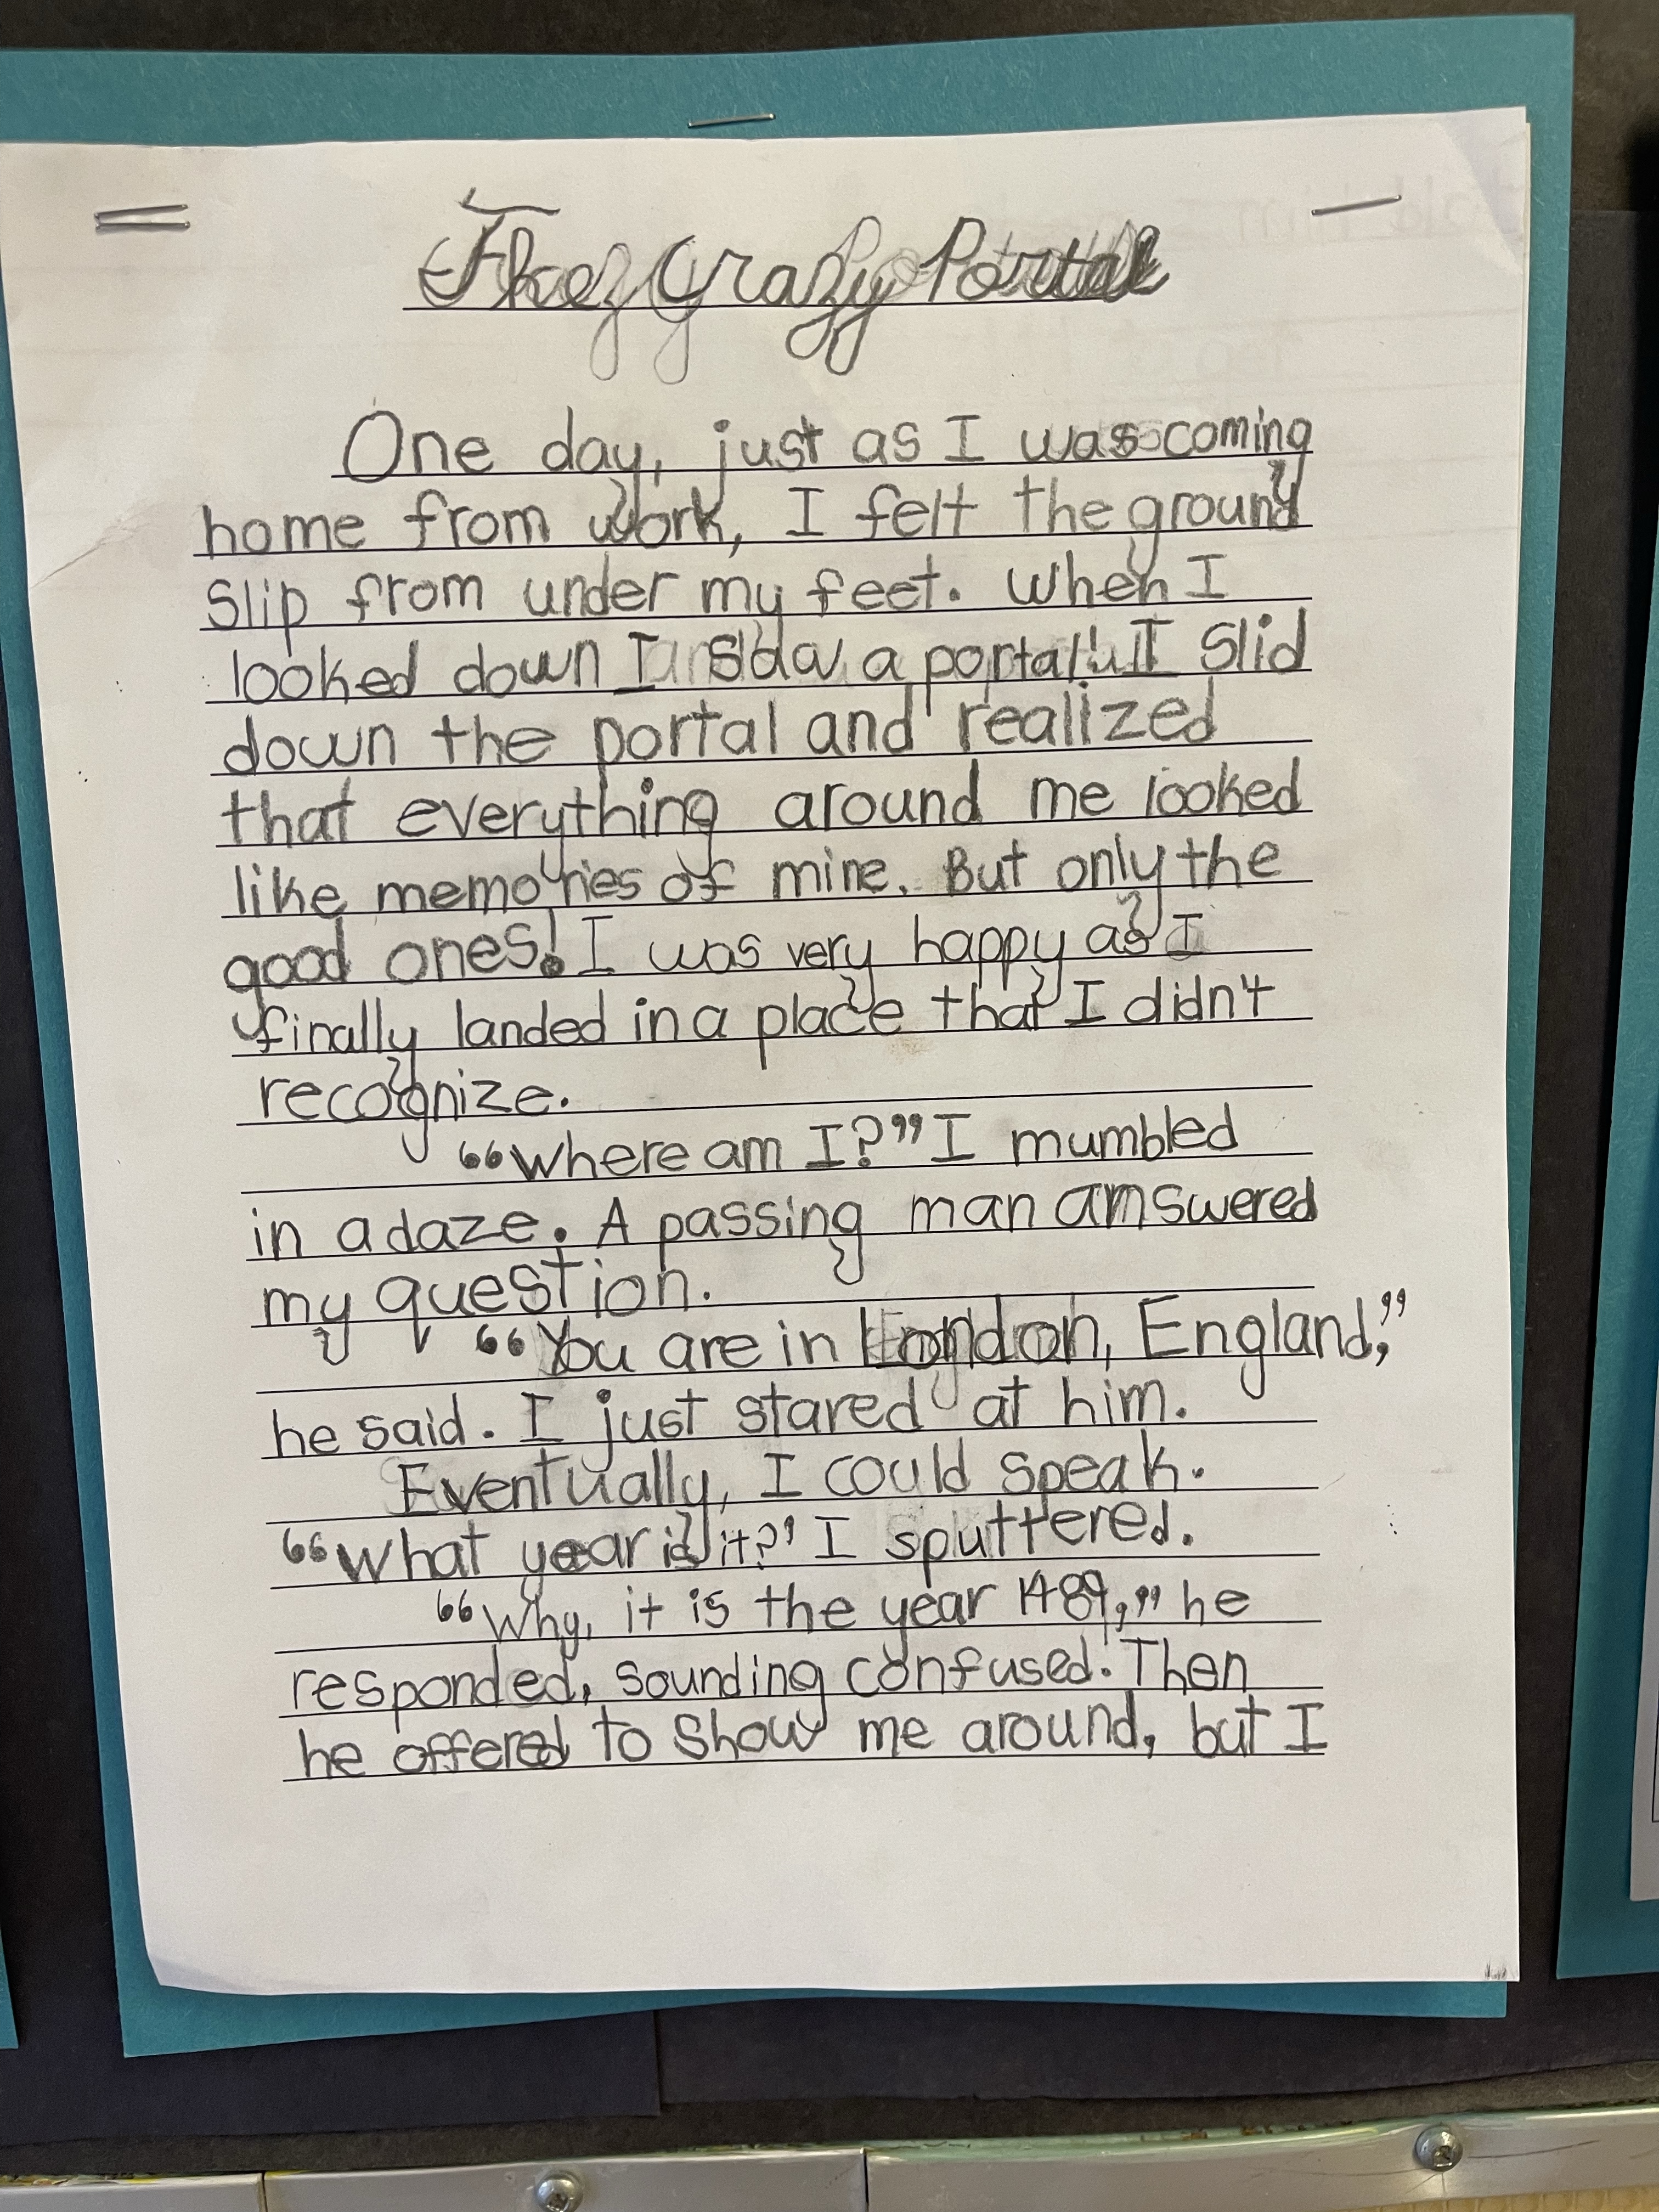 The Crazy Portal
One day, just as I was coming
home from work, I felt the ground
slip from under my feet. When I
looked down I saw a portal! I slid
down the portal and realized
that everything around me looked
like memories of mine. But only the
good ones! I was very happy as I
finally landed in a place that I didn't
recognize.
“Where am I?” I mumbled
in a daze. A passing man amswered
my question.
“You are in London, England,”
he said. I just stared at him.
Eventually, I could speak.
“What year is it?’ I sputtered.
“Why, it is the year 1489,” he
responded, sounding confused. Then
he offered to show me around, but I